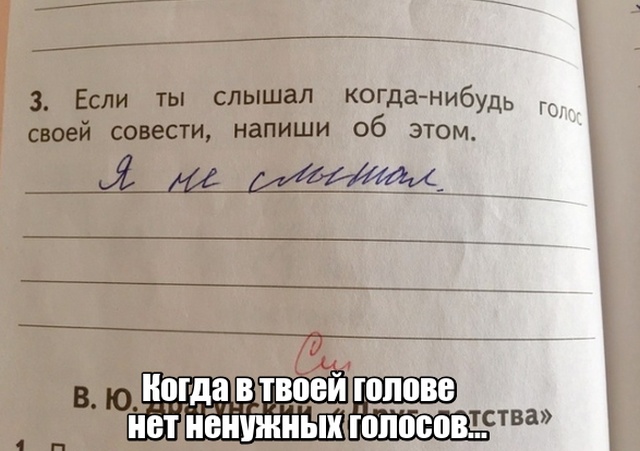 3. Если ты слышал когда-нибудь голос
своей совести, напиши об этом.
Я не слышал.
См
В. Ю. Драгунский. «Друг детства»
Когда в твоей голове
нет ненужных голосов...
1.